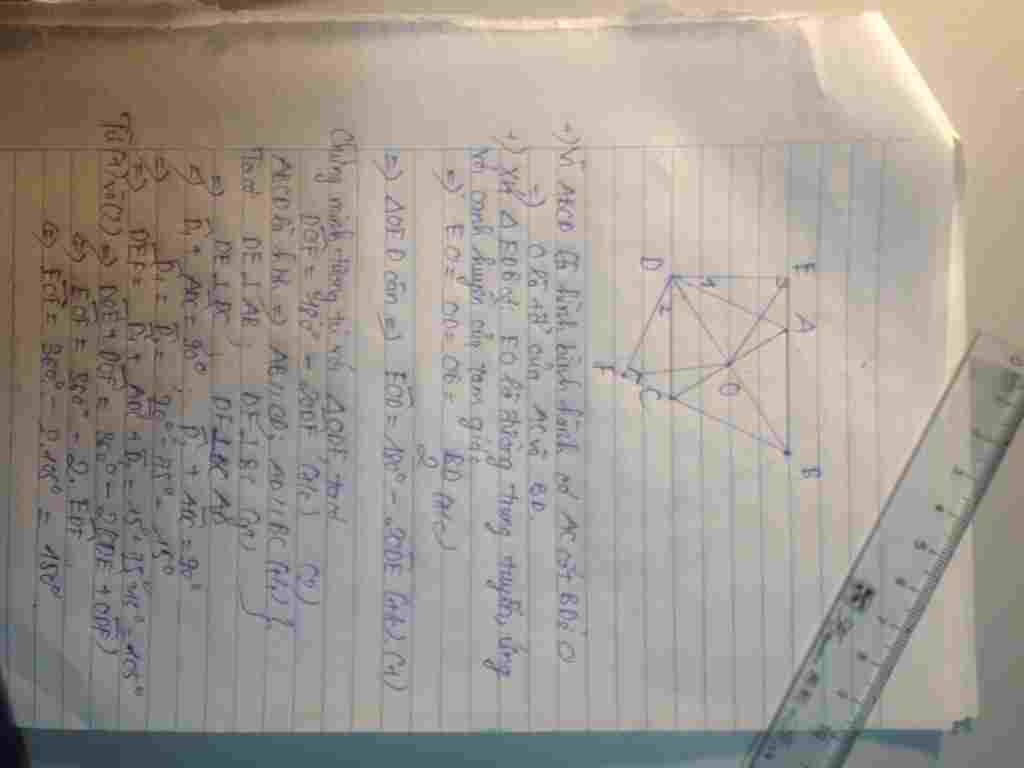 E A B
1
O
D 2 C
F
+) Vì ABCD là hình bình hành có AC cắt BD ở O
=) O là t/đ của AC và BD.
+) Xét △EDB có EO là đường trung tuyến, ứng
với cạnh huyền của tam giác
=) EO = OD = OB = BD/2 (t/c)
=) △OED cân =) EOD = 180° - 2ODE (t/c) (1)
Chứng minh tương tự với △ODF, ta có
DOF = 180° - 2ODF (t/c) (2)
ABCD là hbh =) AB//CD; AD//BC (t/c)
Mà DE⊥AB; DF⊥BC (gt)
=) DE⊥DC; DF⊥AD
=) D1 + ADC = 90°; D2 + ADC = 90°
=) D1 = D2 = 90° - 75° = 15°
=) DEF = D1 + ADC + D2 = 15° + 75° + 15° = 105°
Từ (1) và (2) =) DOE + DOF = 360° - 2(ODE + ODF)
=) EOF = 360° - 2.EDF
=) EOF = 360° - 2.105° = 150°.